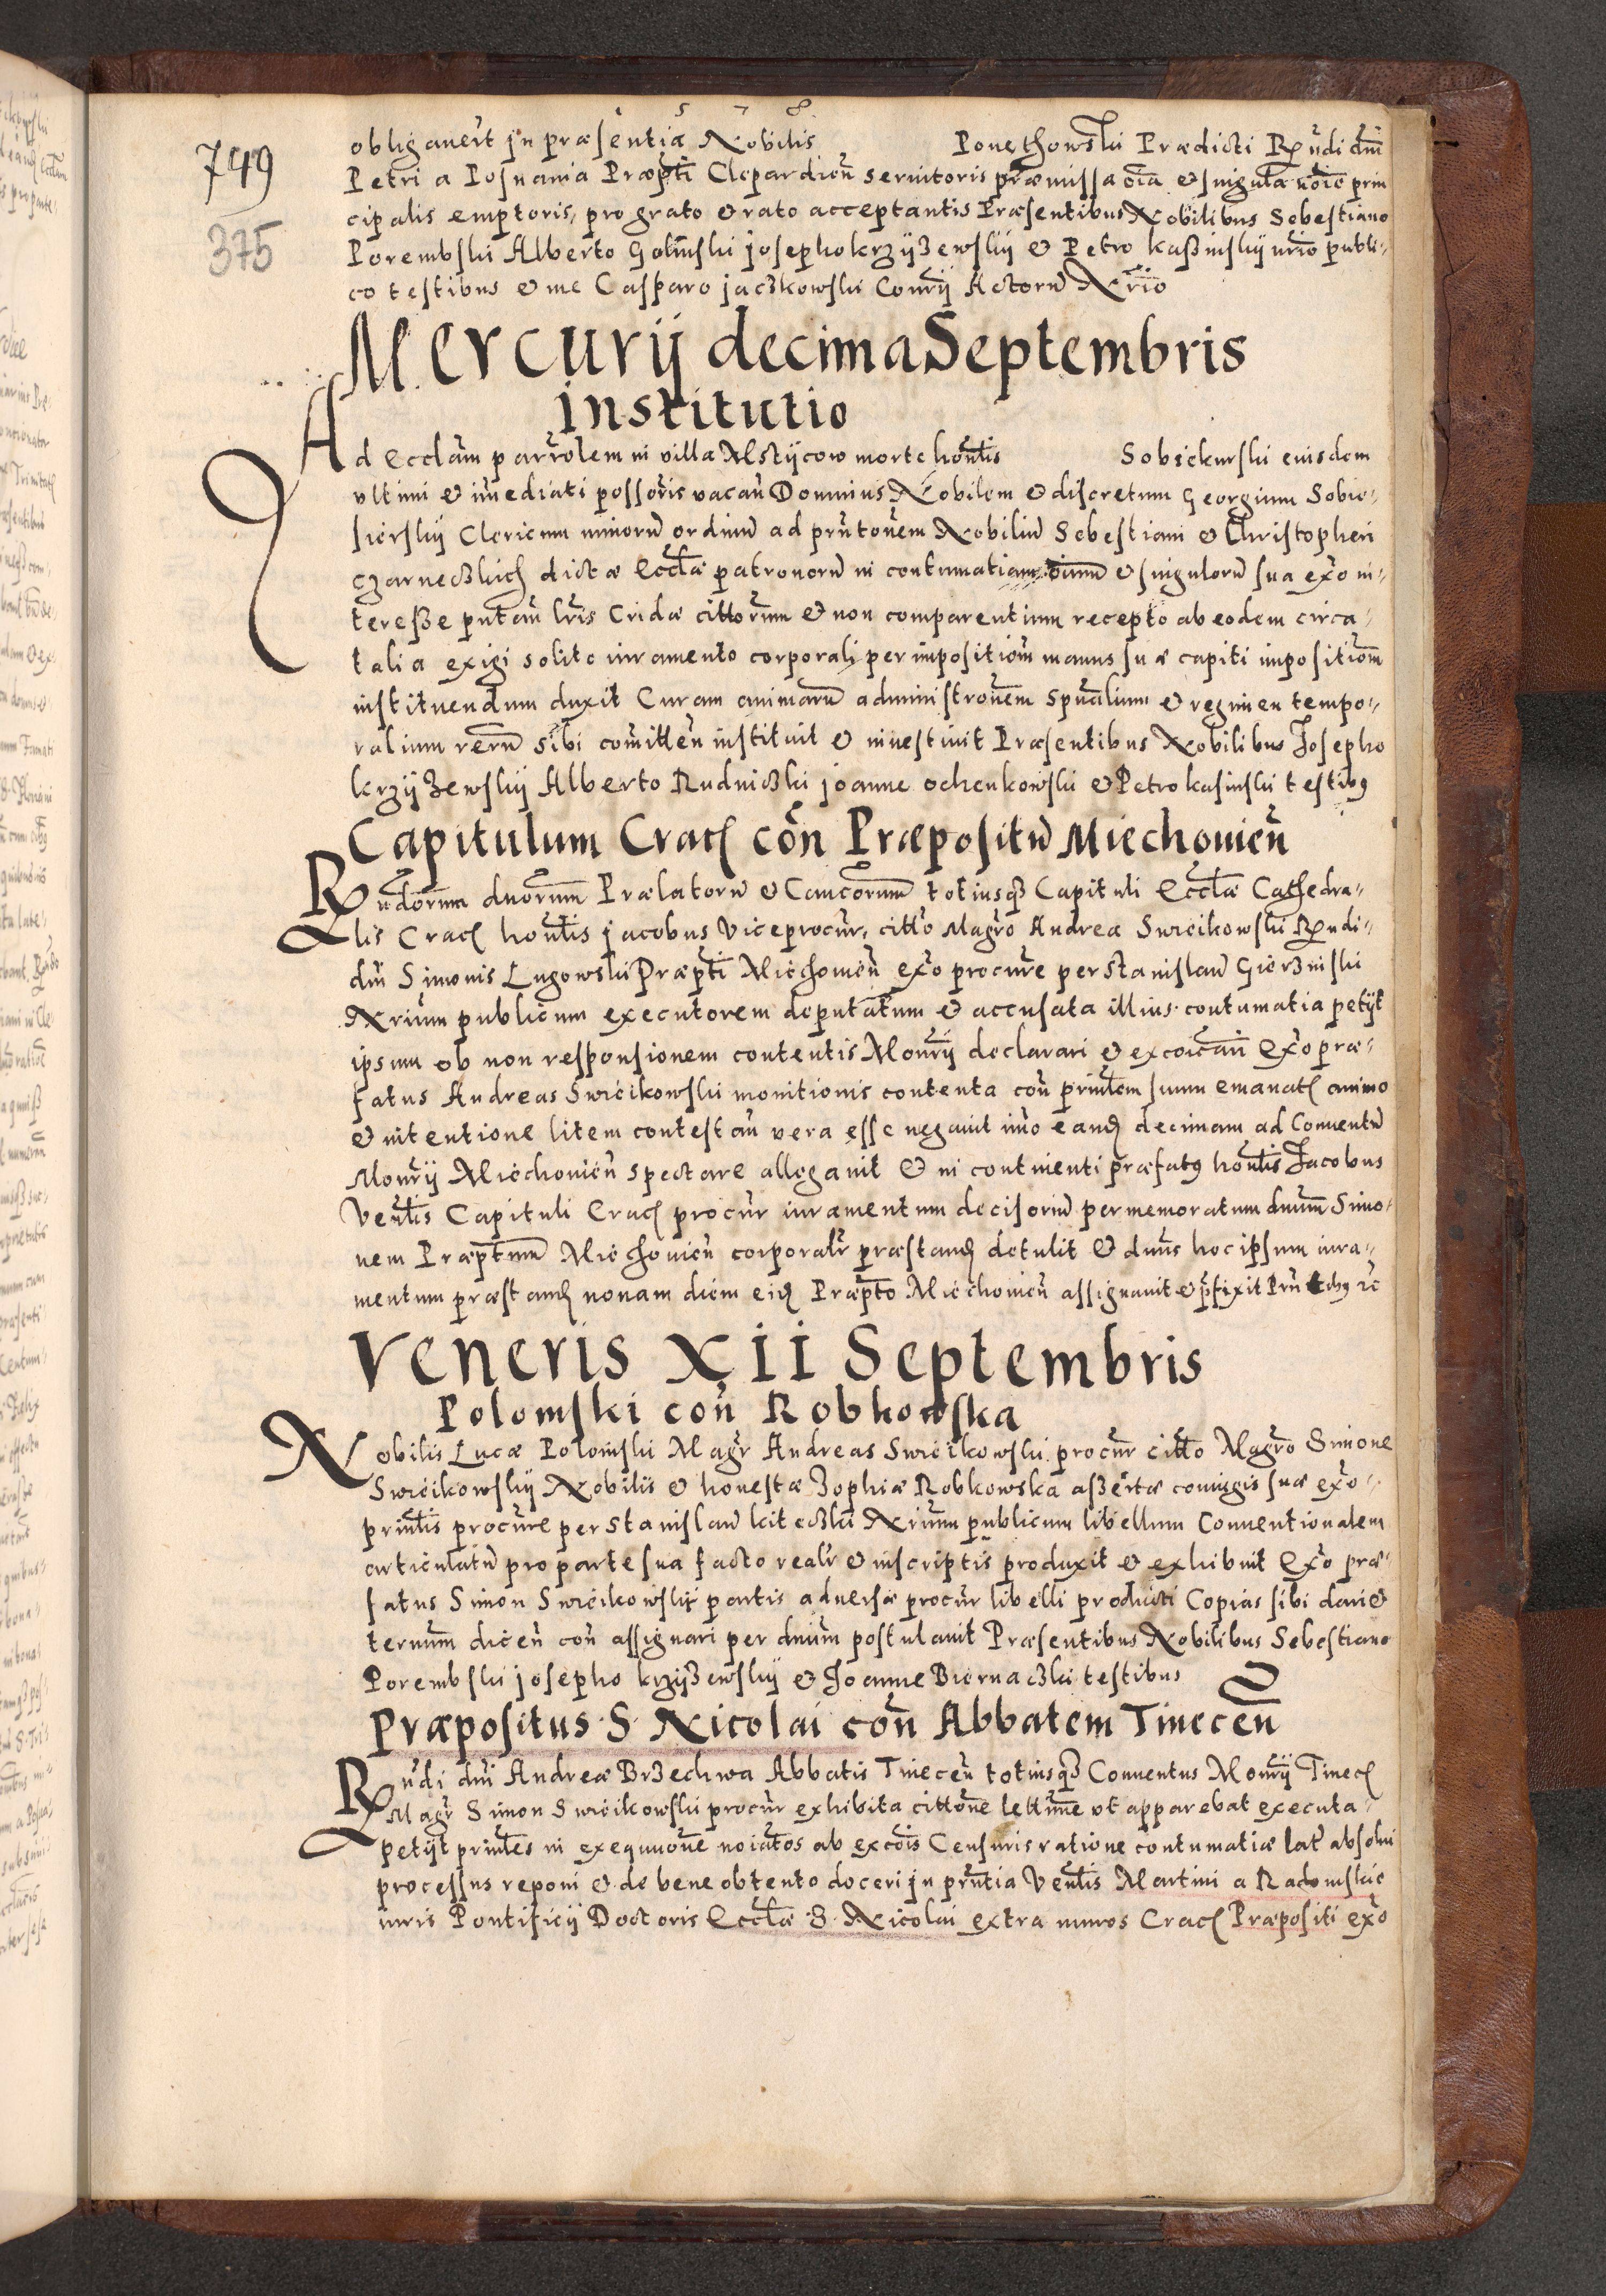 1 5 7 8
749
375
obligauert jn præsentia Nobilis Ponethowski Prædicti Rndi dni
Petri a Posnania Præpti Clepardien̄ seruitoris præmissa oīa et singula noīe prin
cipalis emptoris, pro grato et rato acceptantis Præsentibus Nobilibus Sebestiano
Porembski Alberto Golinski josepho krzyżewskij et Petro kaßinskij nrīo publi-
co testibus et me Casparo jaczkowski Conrij Actorū Nrīo
Mercurij decima Septembris
Institutio
Ad Ecclām parrōlem in villa Mstijcow morte hontis Sobiekurski eiusdem
vltimi et imediati possoris vacan̄ Dominus Nobilem et discretum Georgium Sobie-
kierskij Clericum minorū ordinū ad prntōnem Nobiliū Sebestiani et Christopheri
Czarneczkich dictæ Ecclæ patronorū in contumatiam oīum et singulorū sua exo in-
tereße putan̄ lris Cridæ cittorum et non comparentium recepto ab eodem circa
talia exigi solito iuramento corporali per impositiom manus suæ capiti impositiōm
instituendum duxit Curam animarū administrōnem spūalium et regimen tempo-
ralium rerū sibi comitten̄ instituit et inuestiuit Præsentibus Nobilibus Josepho
krzyżewskij Alberto Rudniczki joanne ochenkowski et Petro kasinski testibus
Capitulum Crac con̄ Præpositū Miechouien̄
Rndorum dnorum Prælatorū et Cancorum totiusqz Capituli Ecclæ Cathedra-
lis Crac hontis jacobus Viceprocur, citto Magro Andrea Swiecikowski Rndi-
dni Simonis Lugowski Præpti Miechouien̄ exo procure per Stanislaū Gierzinski
Nrium publicum executorem deputatum et accusata illius contumatia petijt
ipsum ob non responsionem contentis Monrij declarari et excoīcari Exo præ-
fatus Andreas Swiecikowski monitionis contenta con̄ prinlem suum emanat animo
et intentione litem contestan̄ vera esse negauit imo eand decimam ad Conuentū
Monrij Miechouien̄ spectare allegauit et in continenti præfatus hontis Jacobus
Venlis Capituli Crac procur iuramentum decisoriū per memoratum dnum Simo-
nem Præptum Miechouien̄ corporalr præstand detulit et dnus hoc ipsum iura-
mentum præstand nonam diem eid Præpto Miechouien̄ assignauit et præfixit Prntibus rc
Veneris XII Septembris
Polomski con̄ Robkowska
Nobilis Lucæ Polomski Magr Andreas Swiecikowski procur citto Magro Simone
Swiecikowskij Nobilis et honestæ Zophiæ Robkowska aßertæ coniugis suæ exo
prinlis procure per Stanislaū kiteczki Nrium publicum libellum Conuentionalem
articulatū pro parte sua facto realr et inscriptis produxit et exhibuit Exo præ-
fatus Simon Swiecikowskij partis aduersæ procur libelli producti Copias sibi dari et
ternum dicen̄ con̄ assignari per dnum postulauit Præsentibus Nobilibus Sebestiano
Porembski josepho krzyżewskij et Joanne Biernaczki testibus
Præpositus S. Nicolai con̄ Abbatem Tinecen̄
Rndi dni Andreæ Brzechwa Abbatis Tinecen̄ totiusqz Conuentus Monrij Tinec
Magr Simon Swiecikowski procur exhibita cittone lettime vt apparebat executa
petijt prinles in exequuone noīatos ab excōis Censuris ratione contumatiæ lat absolui
processus reponi et de bene obtento doceri jn prntia Venlis Martini a Radomskie
iuris Pontificij Doctoris Ecclæ S. Nicolai extra muros Crac Præpositi exo